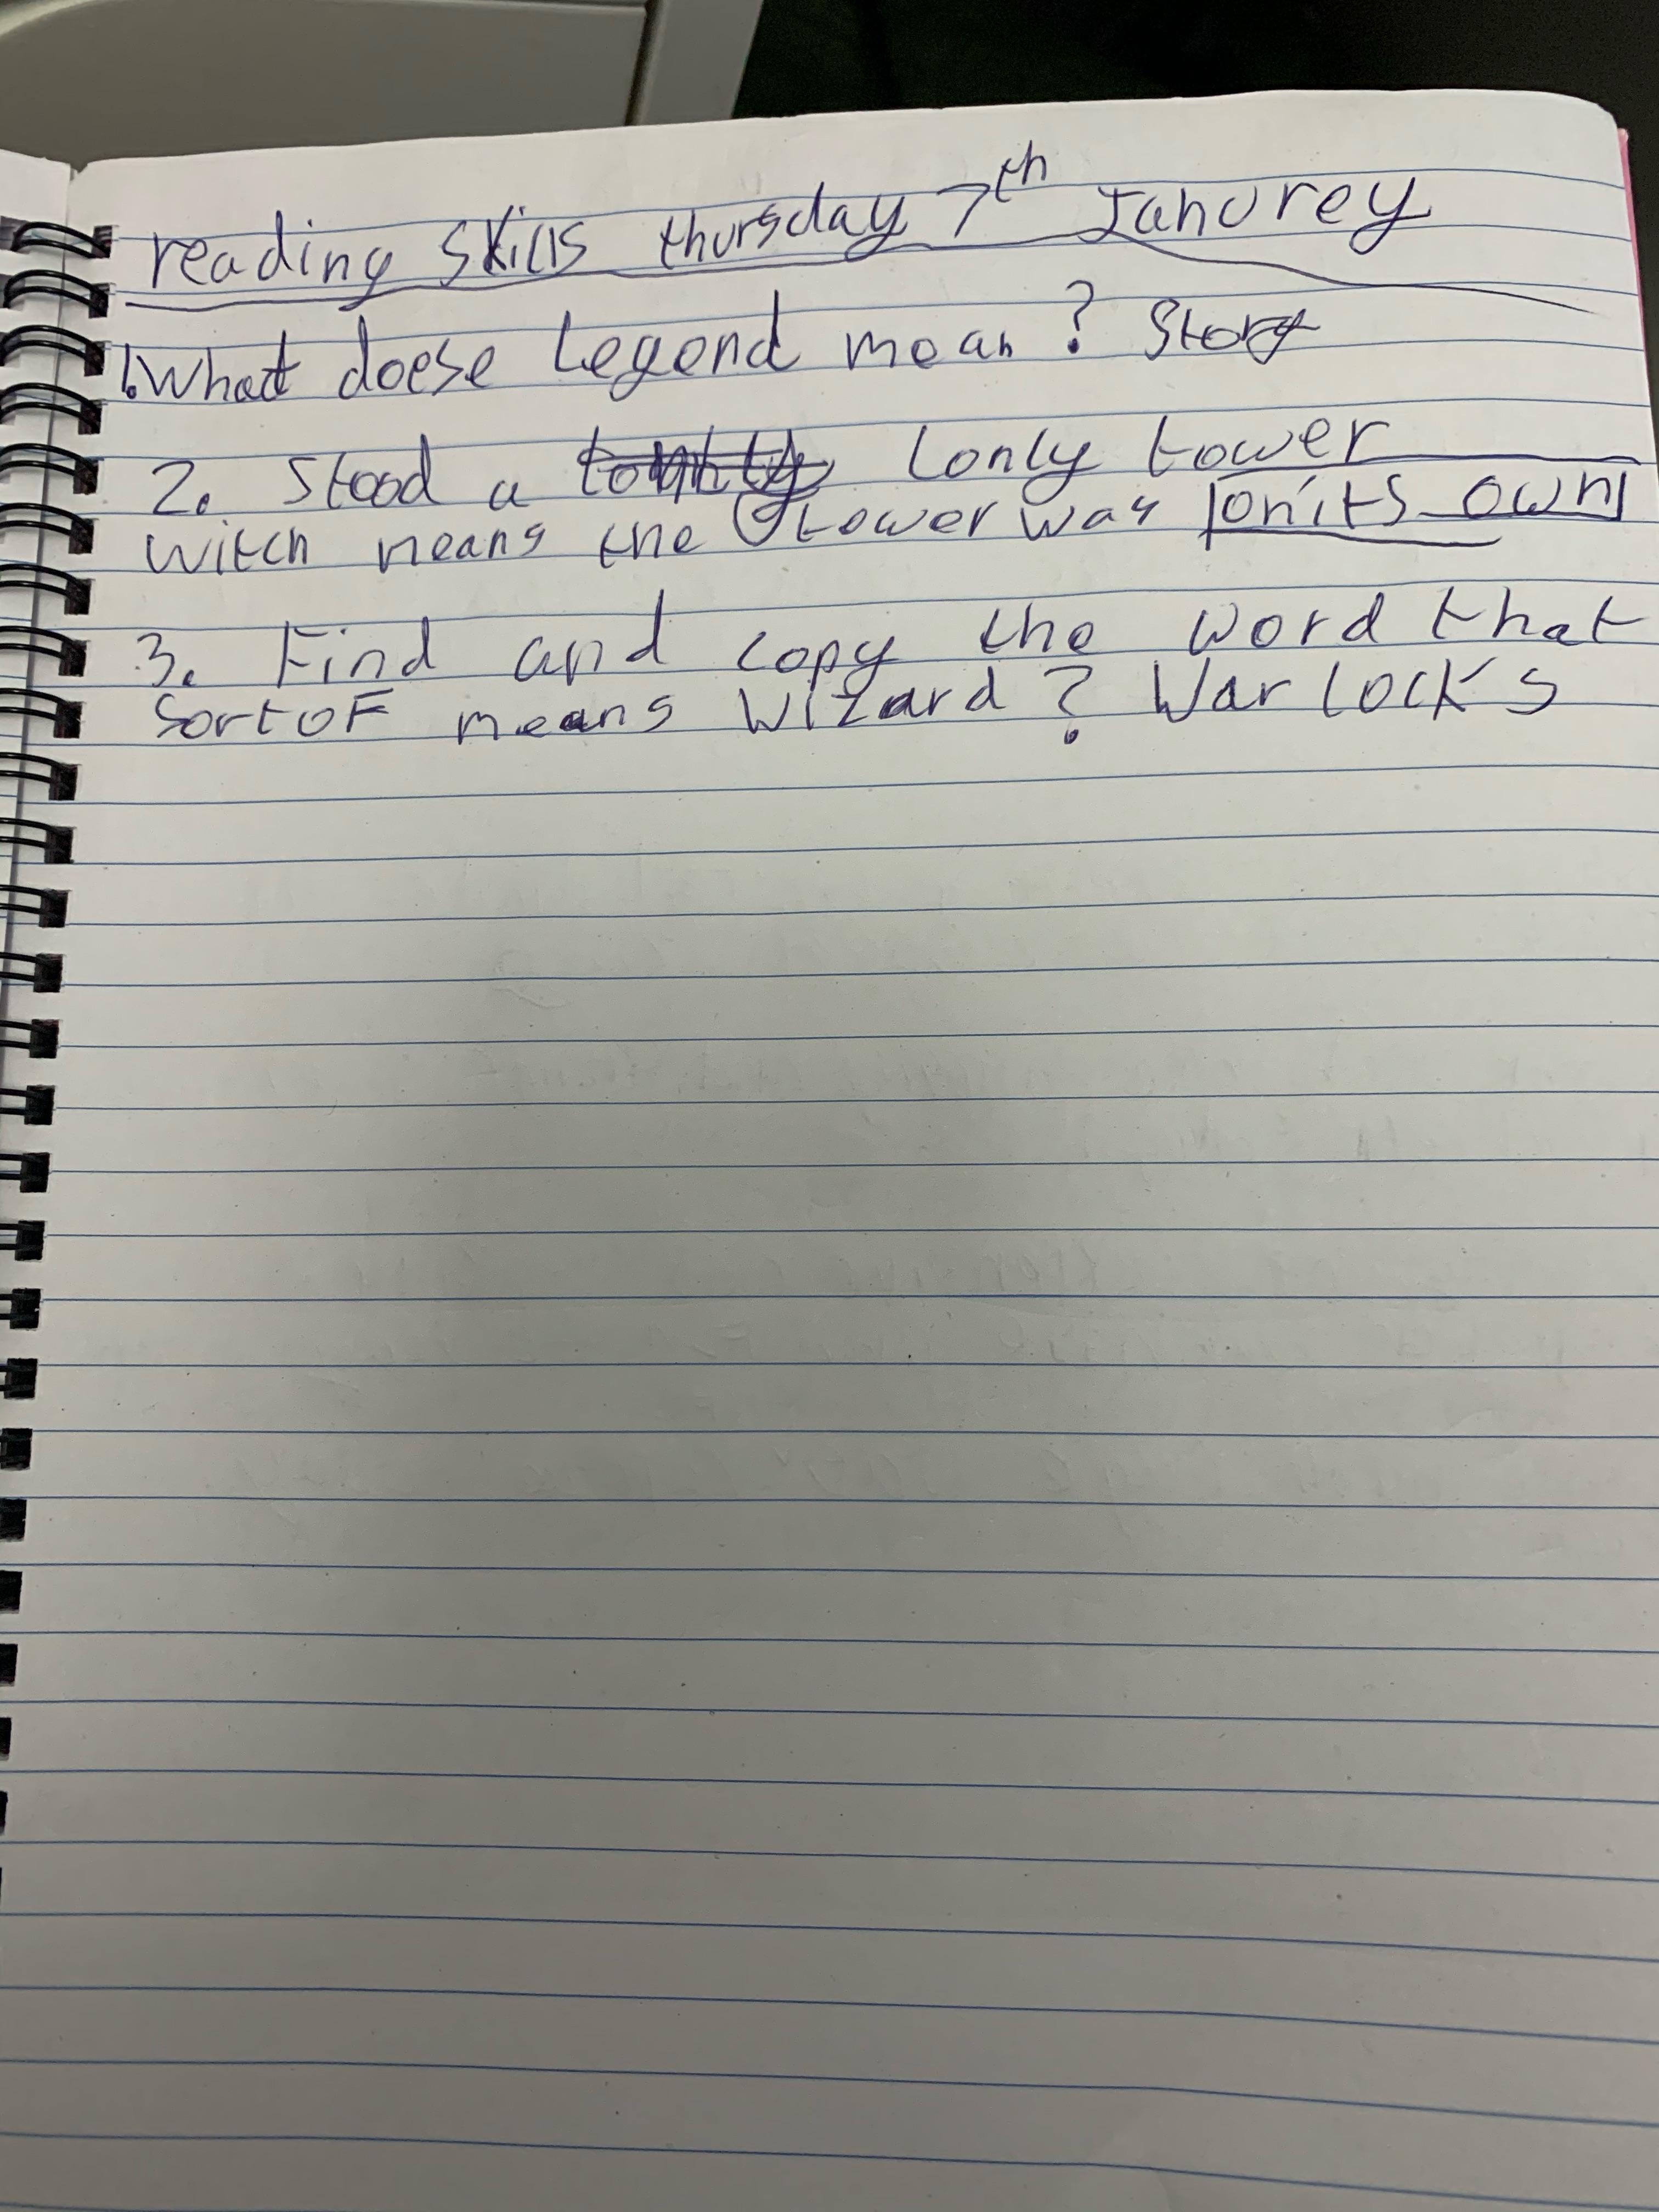 reading skills thursday 7th Janurey
1. What doese Legend mean? Story
2. Stood a lonly tower
witch means the tower was on its own
3. Find and copy the word that
sort oF means Wizard? Warlocks